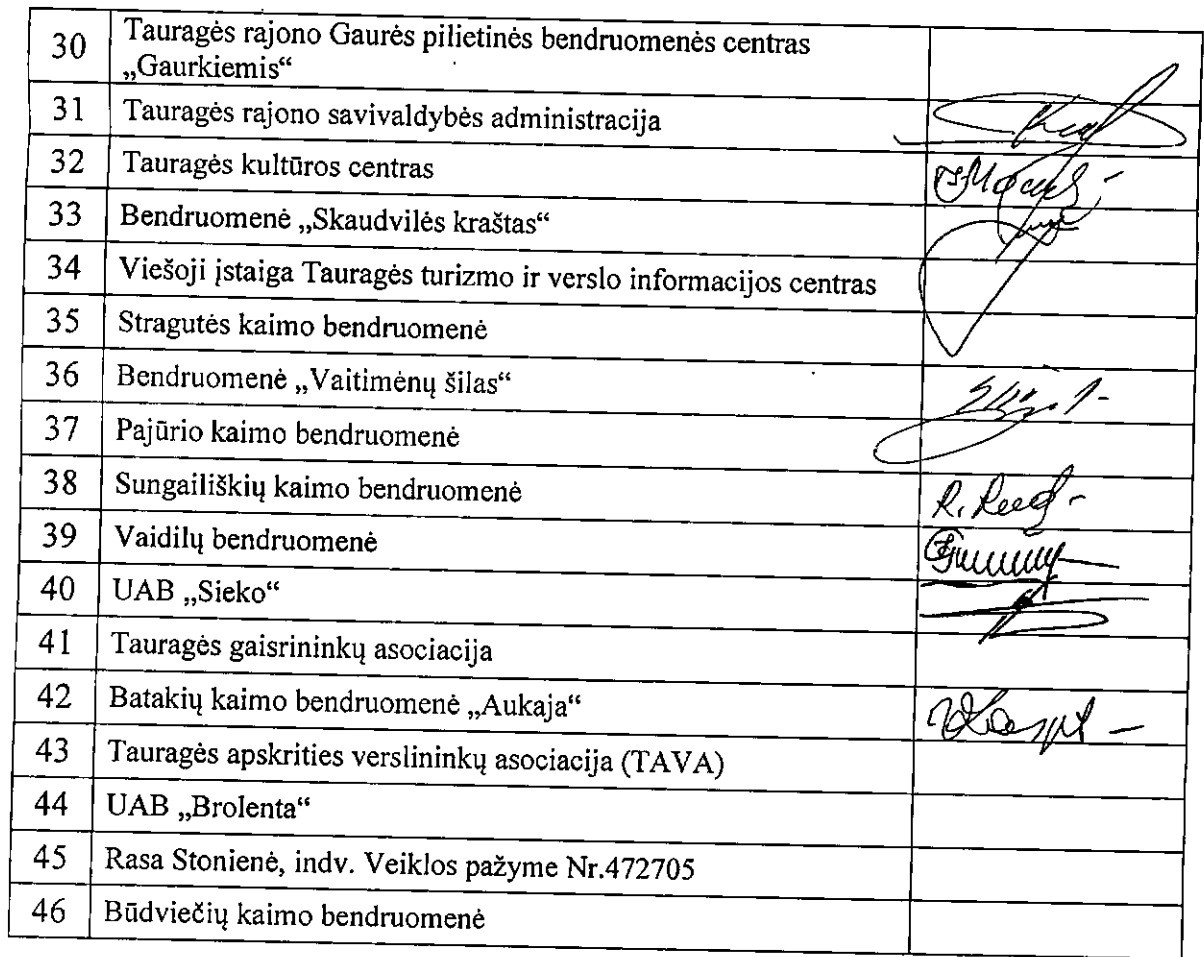 30 Tauragės rajono Gaurės pilietinės bendruomenės centras
„Gaurkiemis“
31 Tauragės rajono savivaldybės administracija
32 Tauragės kultūros centras
33 Bendruomenė „Skaudvilės kraštas“
34 Viešoji įstaiga Tauragės turizmo ir verslo informacijos centras
35 Stragutės kaimo bendruomenė
36 Bendruomenė „Vaitimėnų šilas“
37 Pajūrio kaimo bendruomenė
38 Sungailiškių kaimo bendruomenė
39 Vaidilų bendruomenė
40 UAB „Sieko“
41 Tauragės gaisrininkų asociacija
42 Batakių kaimo bendruomenė „Aukaja“
43 Tauragės apskrities verslininkų asociacija (TAVA)
44 UAB „Brolenta“
45 Rasa Stonienė, indv. Veiklos pažyme Nr.472705
46 Būdviečių kaimo bendruomenė